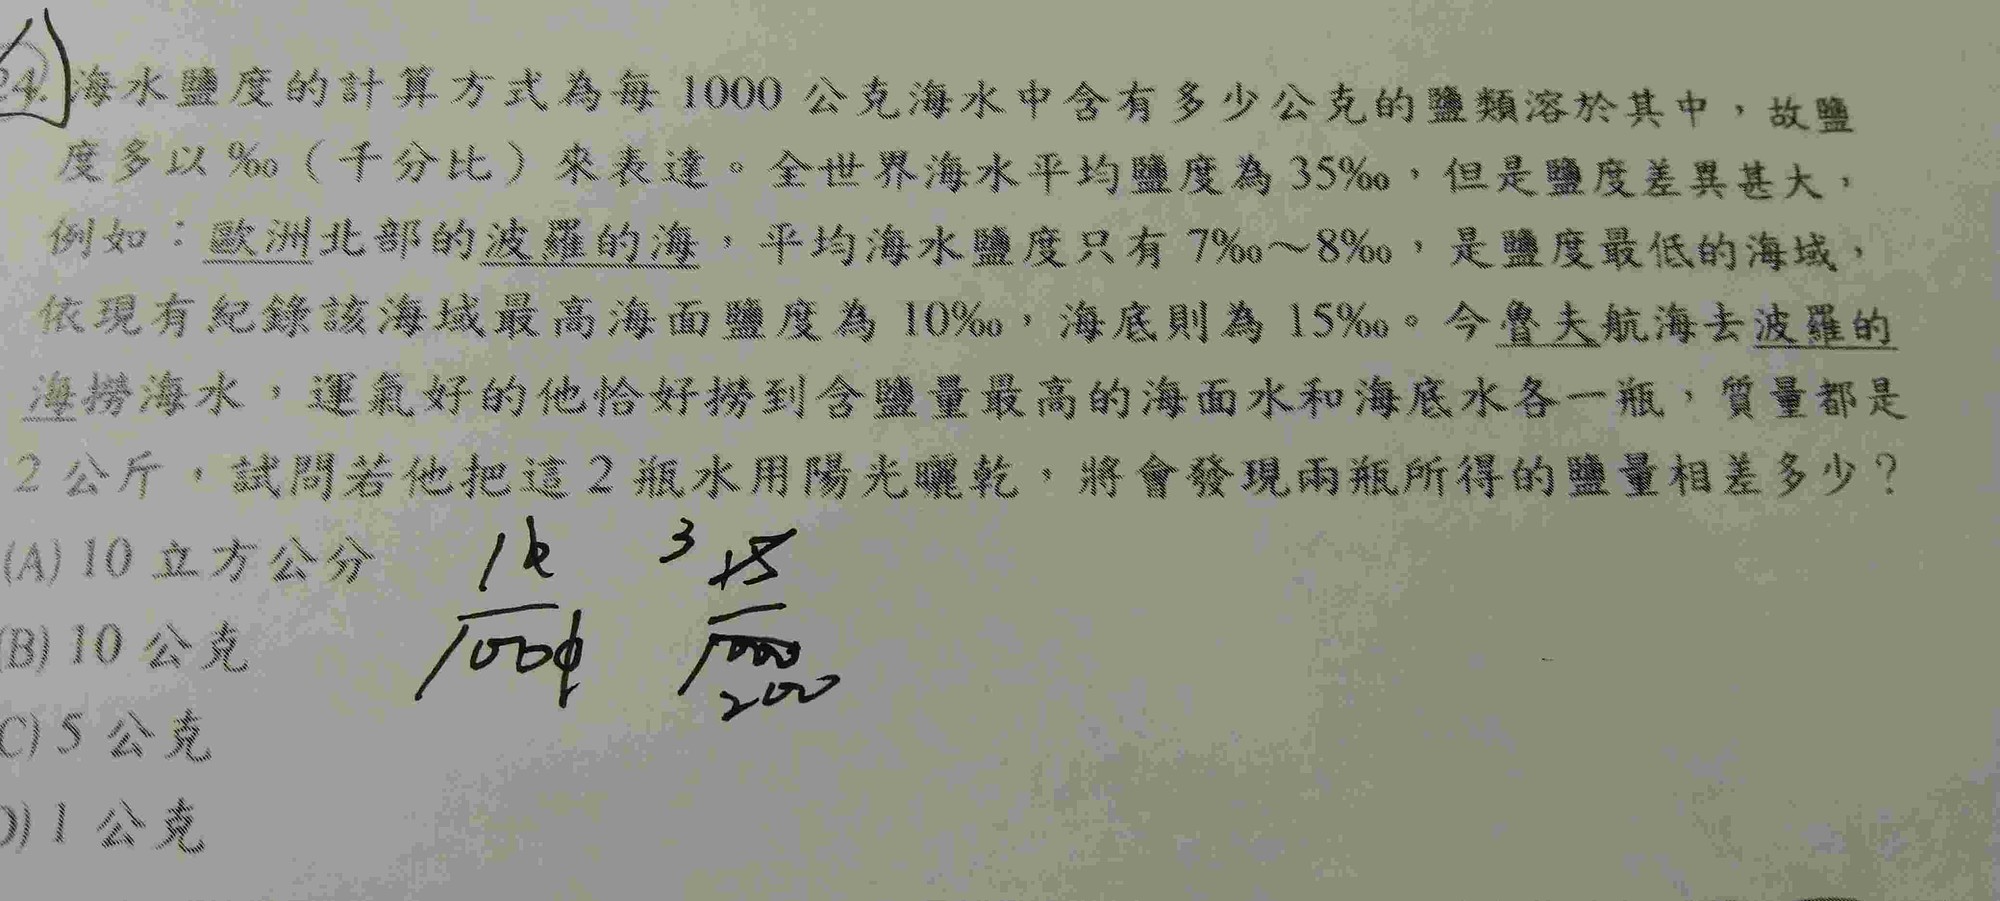 24. 海水鹽度的計算方式為每 1000 公克海水中含有多少公克的鹽類溶於其中，故鹽
度多以 ‰（千分比）來表達。全世界海水平均鹽度為 35‰，但是鹽度差異甚大，
例如：歐洲北部的波羅的海，平均海水鹽度只有 7‰～8‰，是鹽度最低的海域，
依現有紀錄該海域最高海面鹽度為 10‰，海底則為 15‰。今魯夫航海去波羅的
海撈海水，運氣好的他恰好撈到含鹽量最高的海面水和海底水各一瓶，質量都是
2 公斤，試問若他把這 2 瓶水用陽光曬乾，將會發現兩瓶所得的鹽量相差多少？
(A) 10 立方公分
(B) 10 公克
C) 5 公克
D) 1 公克
3 15
1000 1000
200